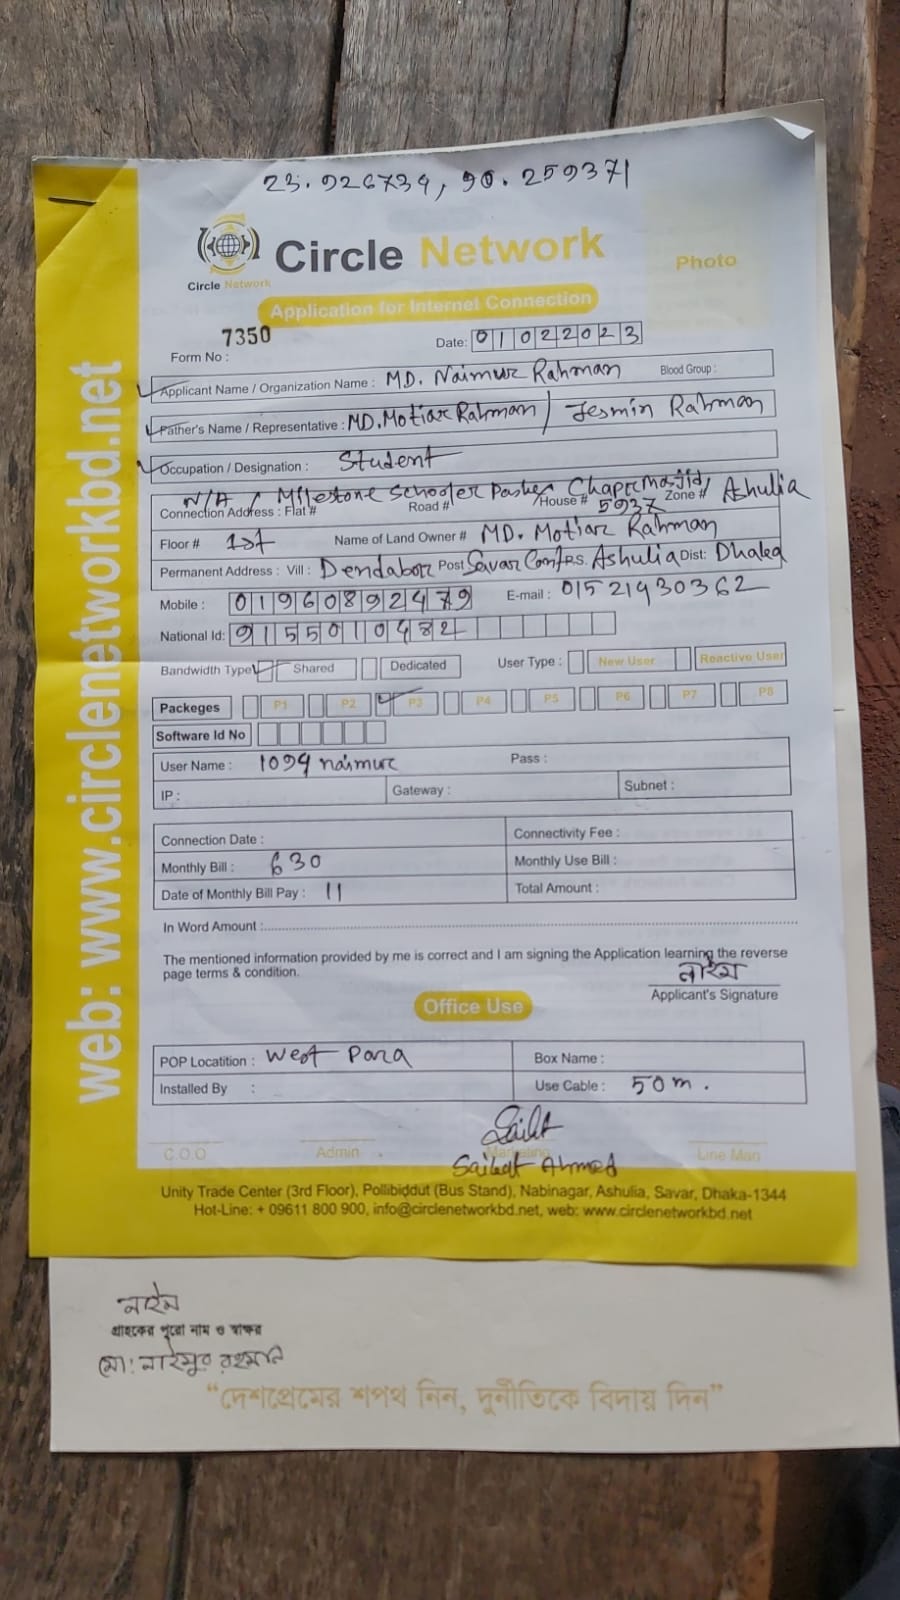 23.926734, 90.259371
Circle Network
Circle Network
Photo
Application for Internet Connection
7350
Form No :
Date: 01022023
Applicant Name / Organization Name : MD. Naimur Rahman Blood Group :
Father's Name / Representative : MD. Motiar Rahman / Jesmin Rahman
Occupation / Designation : Student
N/A / Milestone Schooler Pashe, Chapr Masjid, Ashulia
Connection Address : Flat # Road # House # 5937 Zone #
Floor # 1st Name of Land Owner # MD. Motiar Rahman
Permanent Address : Vill : Dendabor Post Savar Cant PS. Ashulia Dist: Dhaka
Mobile : 01960892479 E-mail : 01521930362
National Id: 9155010482
Bandwidth Type Shared Dedicated User Type : New User Reactive User
Packeges P1 P2 P3 P4 P5 P6 P7 P8
Software Id No
User Name : 1094 naimur Pass :
IP : Gateway : Subnet :
Connection Date : Connectivity Fee :
Monthly Bill : 630 Monthly Use Bill :
Date of Monthly Bill Pay : 11 Total Amount :
In Word Amount :
The mentioned information provided by me is correct and I am signing the Application learning the reverse
page terms & condition.
নাইম
Applicant's Signature
Office Use
POP Locatition : West Para Box Name :
Installed By : Use Cable : 50 m.
C.O.O Admin Marketing Line Man
Saikat Ahmed
Unity Trade Center (3rd Floor), Pollibiddut (Bus Stand), Nabinagar, Ashulia, Savar, Dhaka-1344
Hot-Line: + 09611 800 900, info@circlenetworkbd.net, web: www.circlenetworkbd.net
web: www.circlenetworkbd.net
নাইম
গ্রাহকের পুরো নাম ও স্বাক্ষর
মো: নাইমুর রহমান
“দেশপ্রেমের শপথ নিন, দুর্নীতিকে বিদায় দিন”